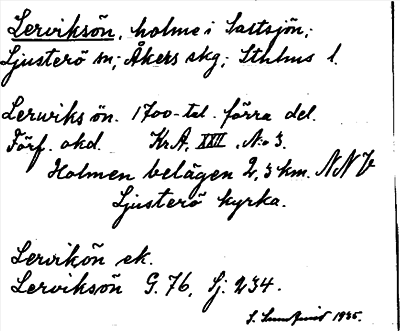 Lerviksön, holme i Saltsjön,;
Ljusterö sn; Åkers skg; Sthlms l.
Lerwiks ön. 1700-tal. förra del.
Förf. okd. KrA, XXII, No 3.
Holmen belägen 2,3 km. NNV
Ljusterö kyrka.
Lervikön ek.
Lerviksön G. 76, Sj: 234.
1935.